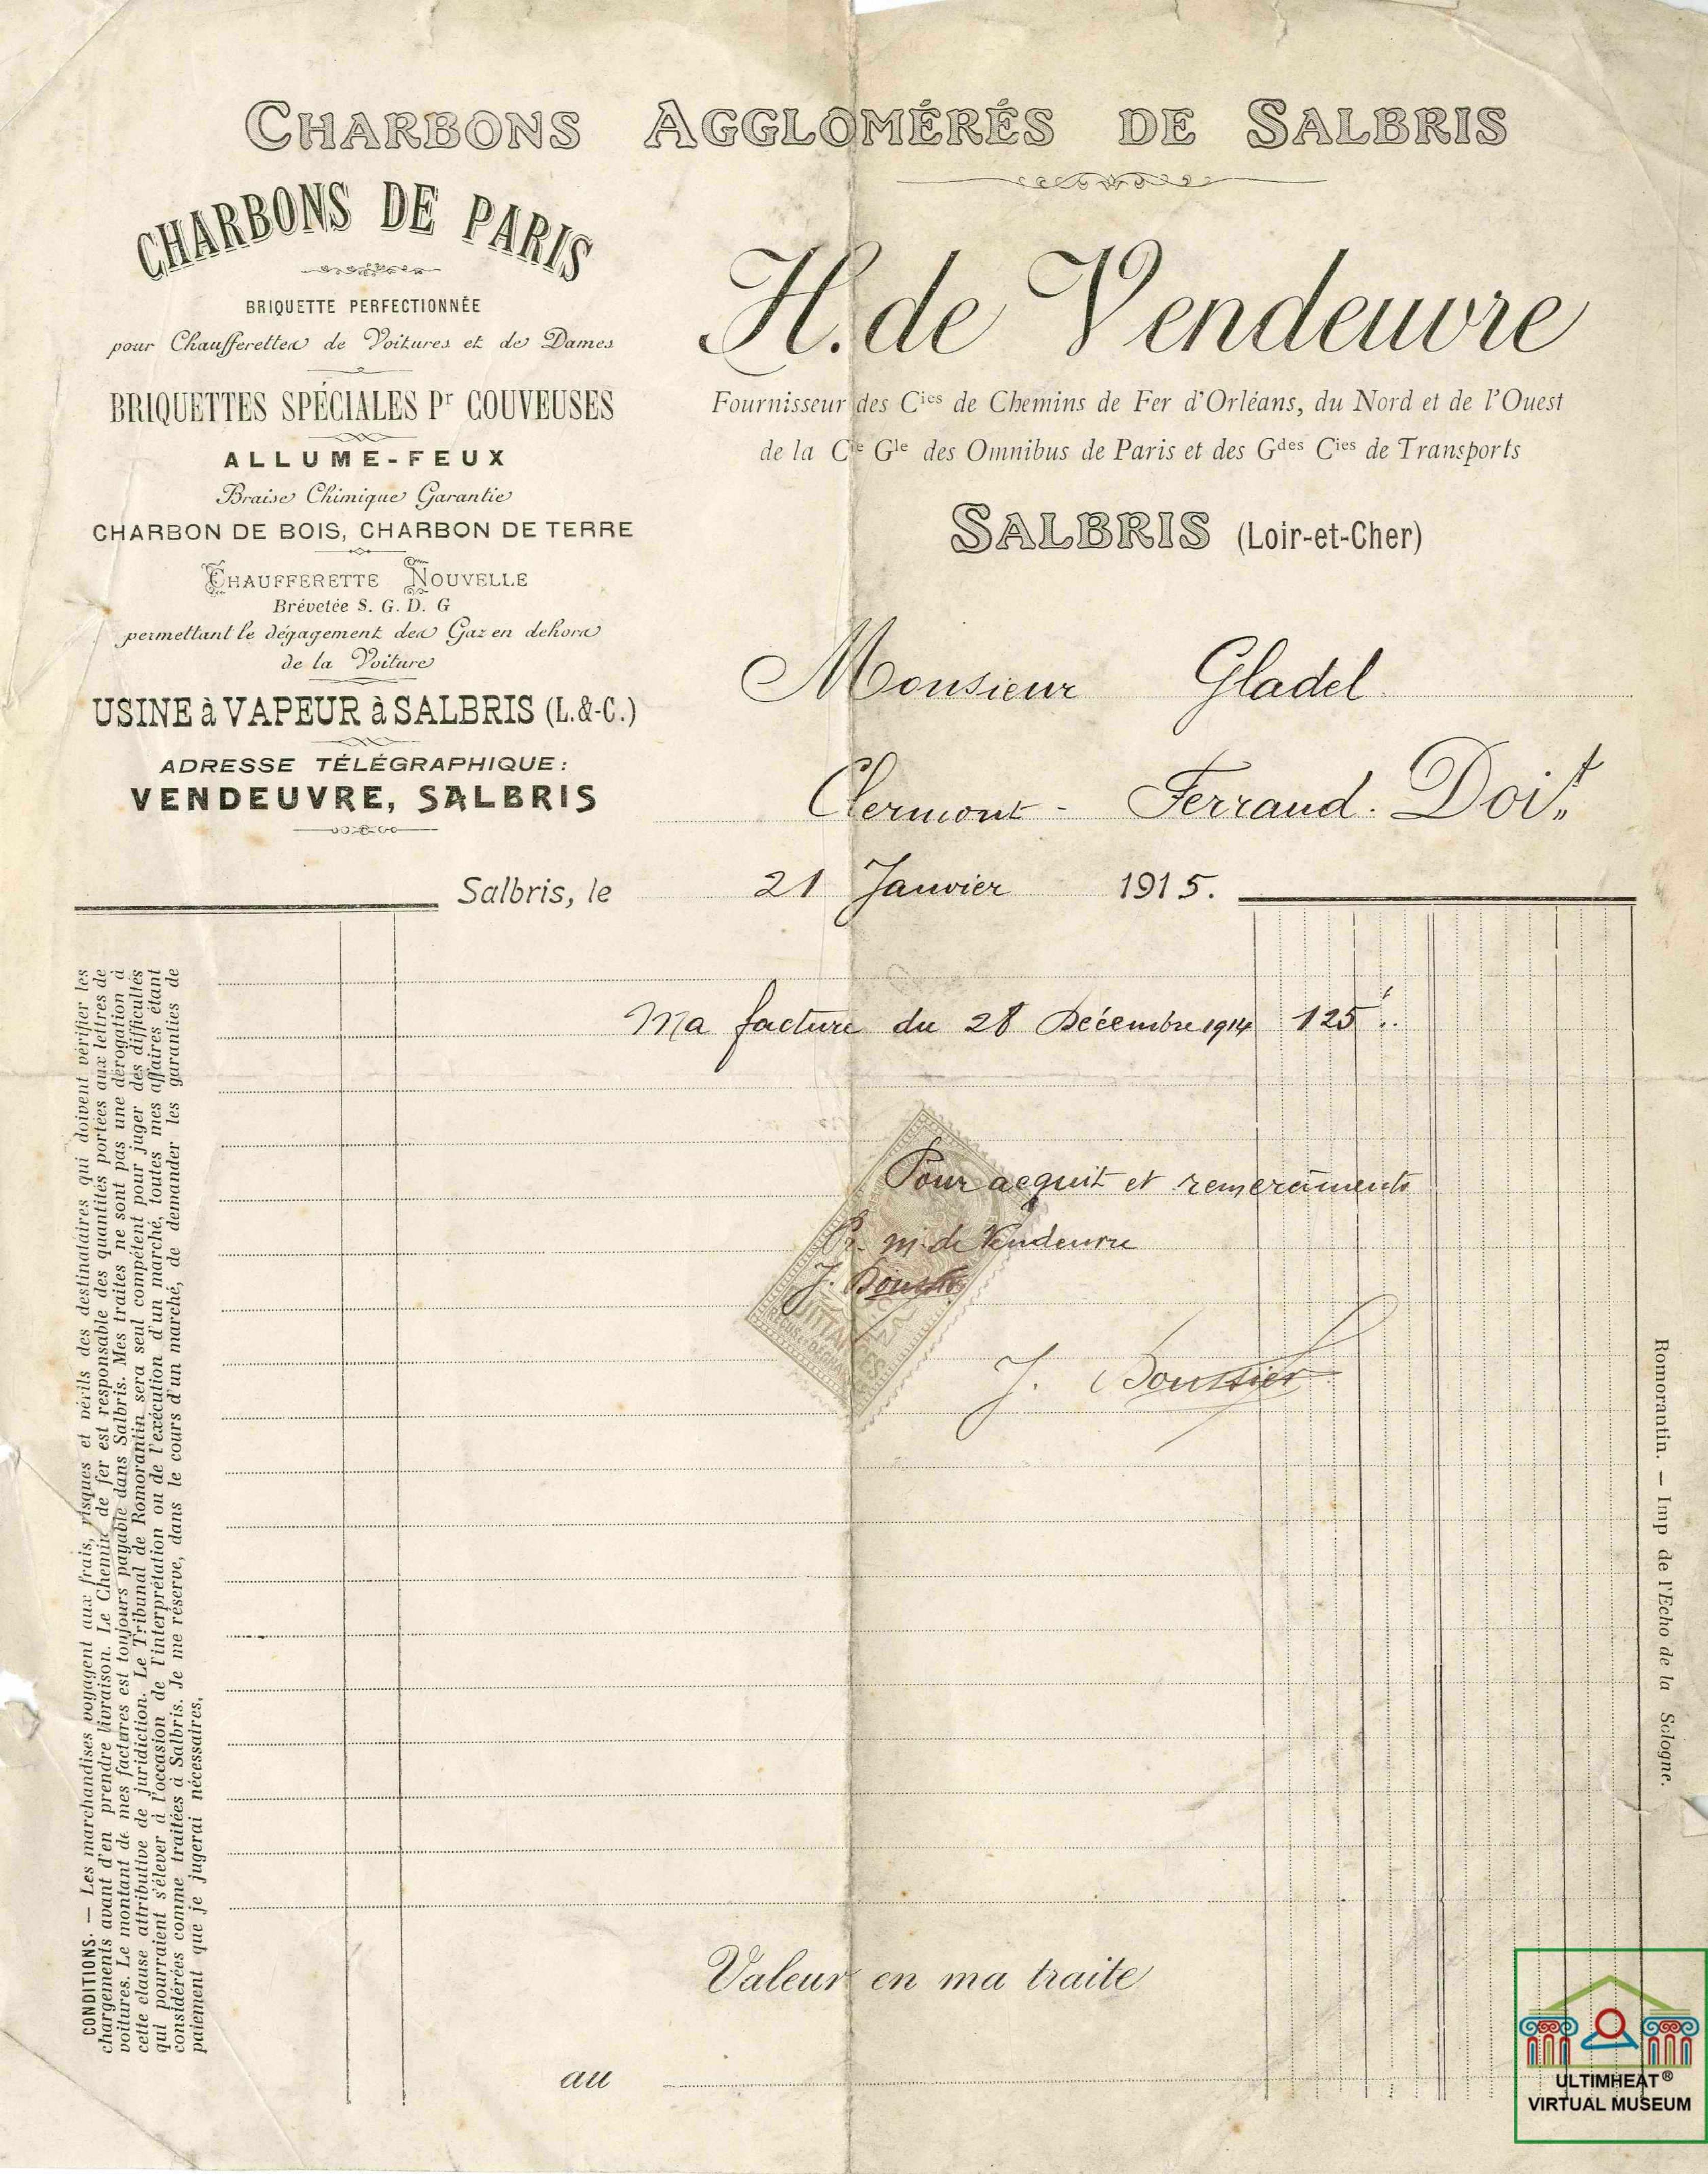 CHARBONS AGGLOMÉRÉS DE SALBRIS
CHARBONS DE PARIS
BRIQUETTE PERFECTIONNÉE
pour Chaufferettes de Voitures et de Dames
BRIQUETTES SPÉCIALES Pr COUVEUSES
ALLUME-FEUX
Braise Chimique Garantie
CHARBON DE BOIS, CHARBON DE TERRE
CHAUFFERETTE NOUVELLE
Brévetée S. G. D. G
permettant le dégagement des Gaz en dehors
de la Voiture
USINE à VAPEUR à SALBRIS (L.&-C.)
ADRESSE TÉLÉGRAPHIQUE:
VENDEUVRE, SALBRIS
H. de Vendeuvre
Fournisseur des Cies de Chemins de Fer d'Orléans, du Nord et de l'Ouest
de la Cie Gle des Omnibus de Paris et des Gdes Cies de Transports
SALBRIS (Loir-et-Cher)
Monsieur Gladel
Clermont - Ferrand. Doit
Salbris, le 21 Janvier 1915.
Ma facture du 28 Décembre 1914 125
Pour acquit et remerciements
m. de Vendeuvre
J. Boussier
QUITTANCES
J. Boussier
Valeur en ma traite
au
CONDITIONS. — Les marchandises voyagent aux frais, risques et périls des destinataires qui doivent vérifier les
chargements avant d'en prendre livraison. Le Chemin de fer est responsable des quantités portées aux lettres de
voitures. Le montant de mes factures est toujours payable dans Salbris. Mes traites ne sont pas une dérogation à
cette clause attributive de juridiction. Le Tribunal de Romorantin sera seul compétent pour juger des difficultés
qui pourraient s'élever à l'occasion de l'interprétation ou de l'exécution d'un marché, toutes mes affaires étant
considérées comme traitées à Salbris. Je me réserve, dans le cours d'un marché, de demander les garanties de
paiement que je jugerai nécessaires,
Romorantin. — Imp de l'Echo de la Sologne.
ULTIMHEAT®
VIRTUAL MUSEUM